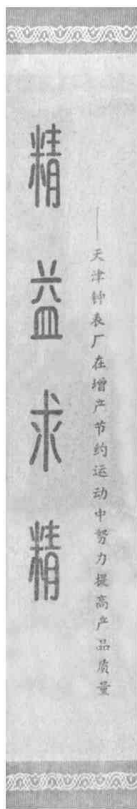 精益求精
——天津钟表厂在增产节约运动中努力提高产品质量